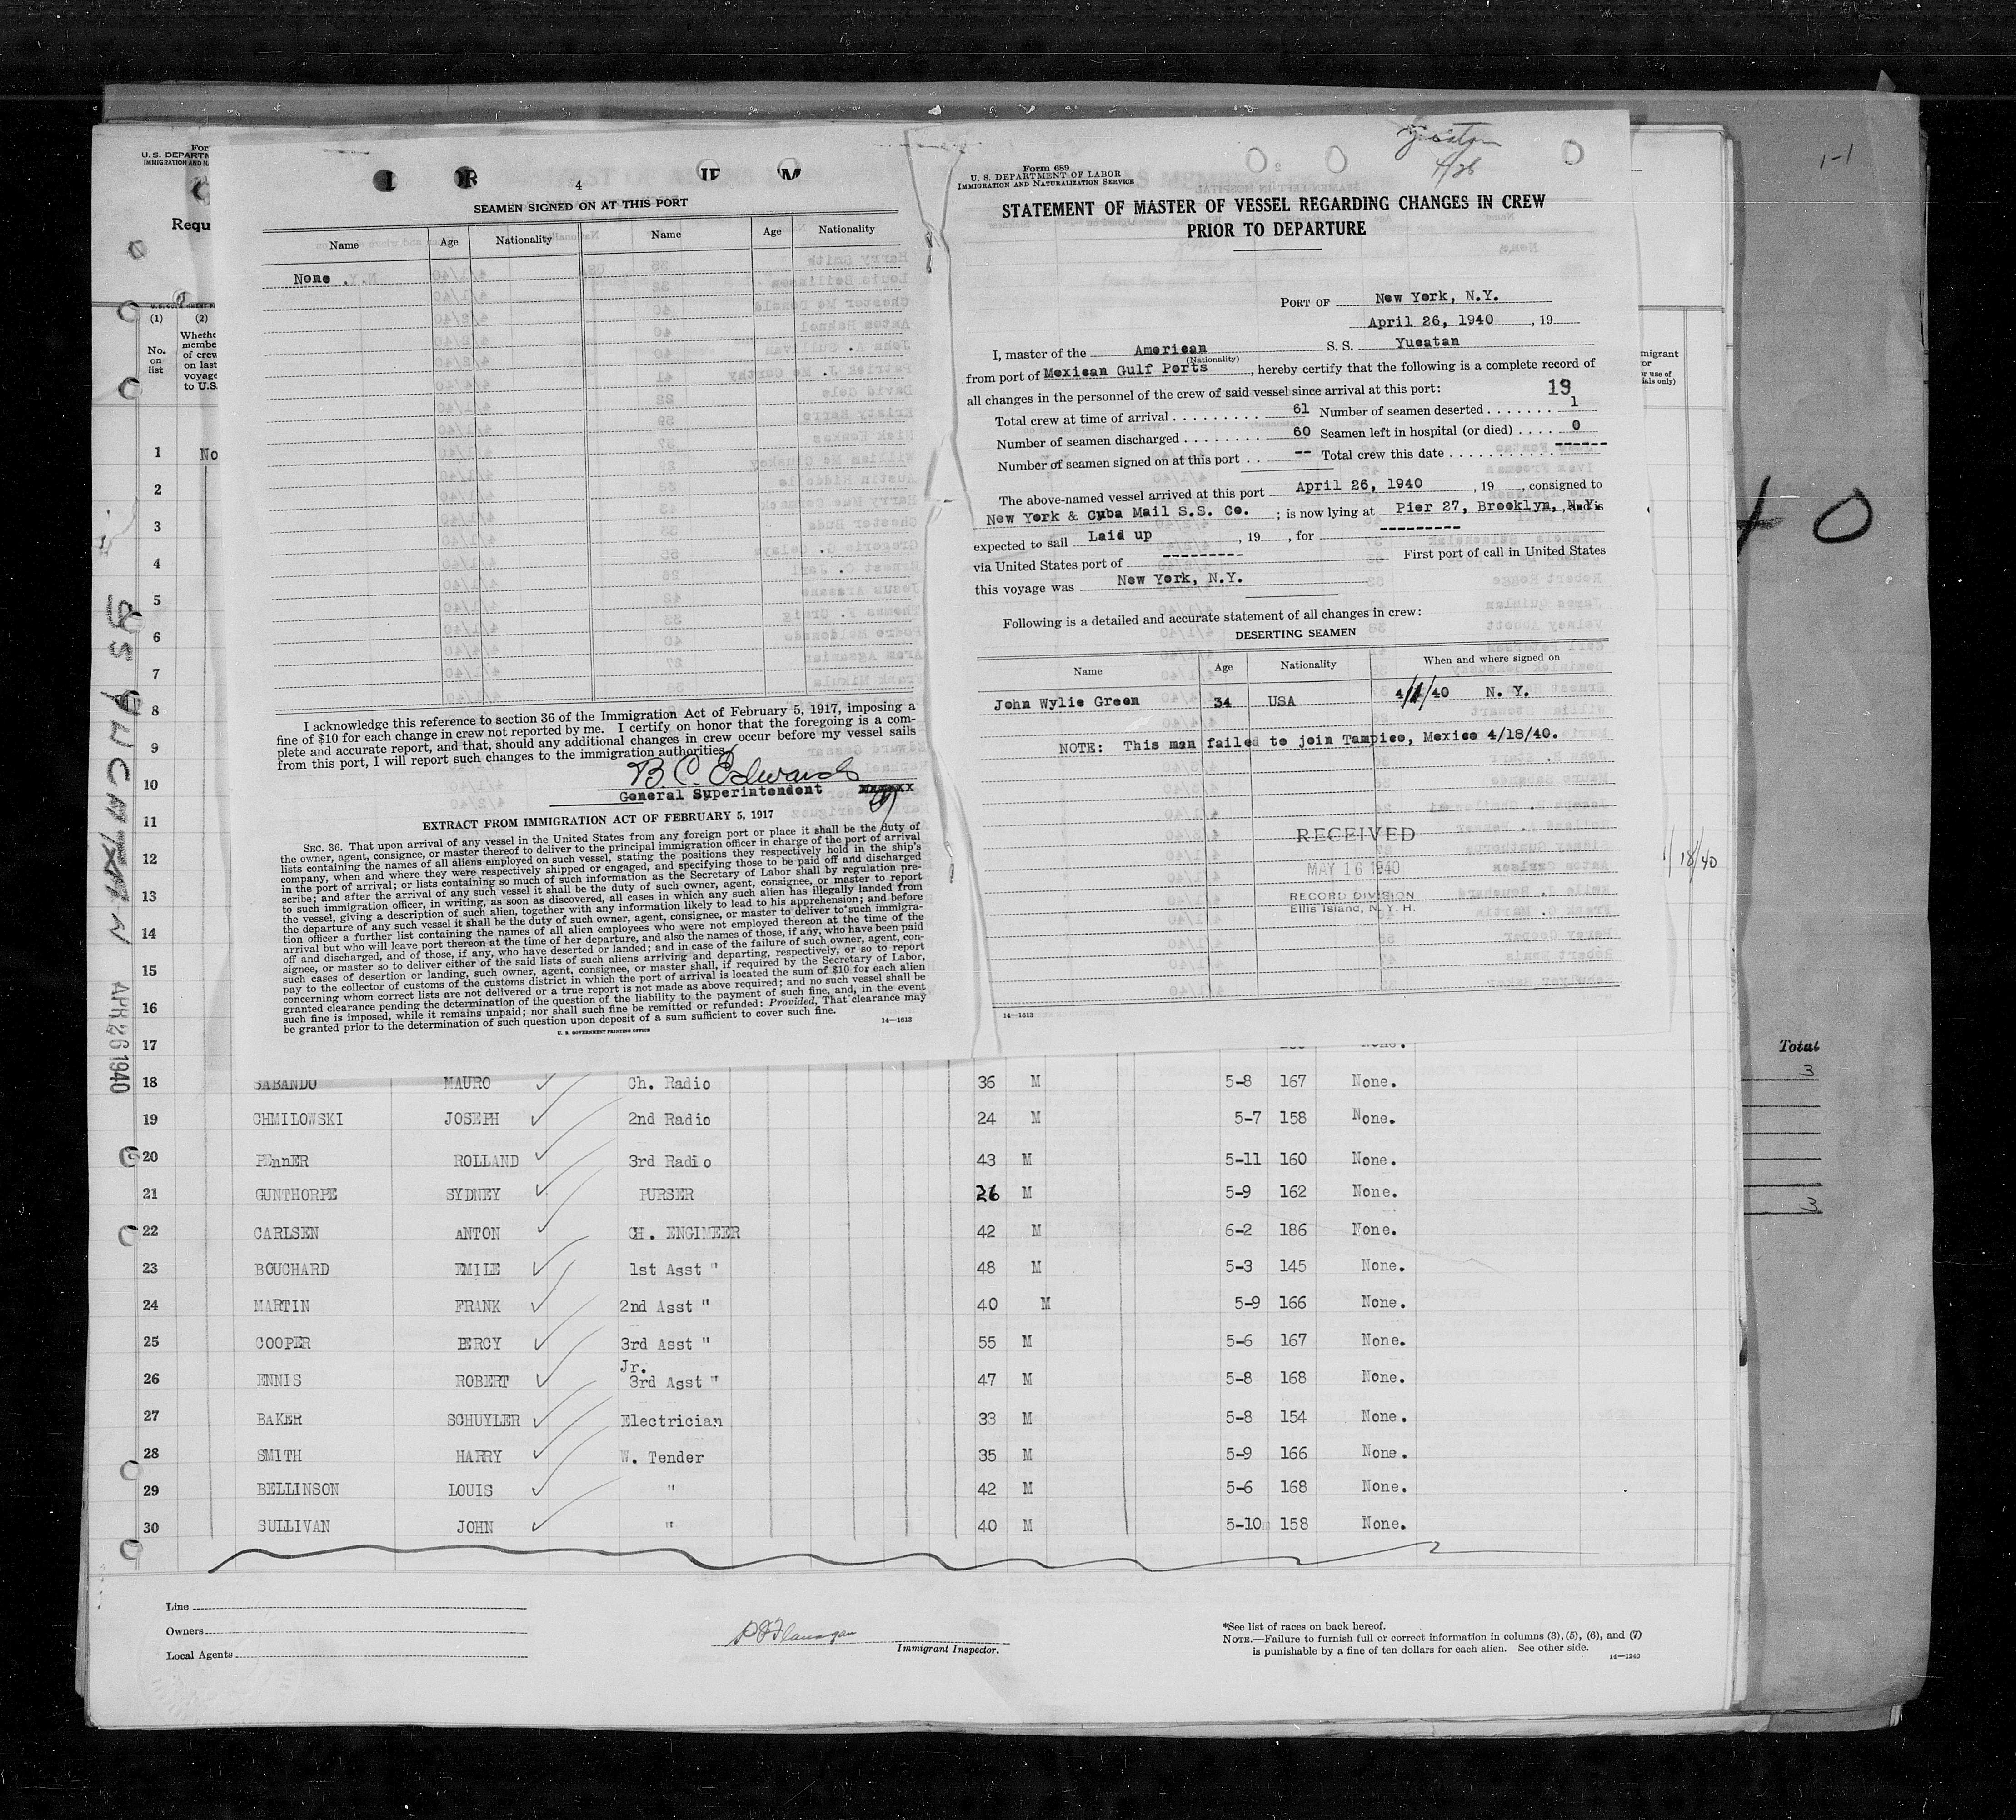 4
SEAMEN SIGNED ON AT THIS PORT
Name Age Nationality Name Age Nationality
None
I acknowledge this reference to section 36 of the Immigration Act of February 5, 1917, imposing a
fine of $10 for each change in crew not reported by me. I certify on honor that the foregoing is a com-
plete and accurate report, and that, should any additional changes in crew occur before my vessel sails
from this port, I will report such changes to the immigration authorities.
B. C. Edwards
General Superintendent
EXTRACT FROM IMMIGRATION ACT OF FEBRUARY 5, 1917
SEC. 36. That upon arrival of any vessel in the United States from any foreign port or place it shall be the duty of
the owner, agent, consignee, or master thereof to deliver to the principal immigration officer in charge of the port of arrival
lists containing the names of all aliens employed on such vessel, stating the positions they respectively hold in the ship's
company, when and where they were respectively shipped or engaged, and specifying those to be paid off and discharged
in the port of arrival; or lists containing so much of such information as the Secretary of Labor shall by regulation pre-
scribe; and after the arrival of any such vessel it shall be the duty of such owner, agent, consignee, or master to report
to such immigration officer, in writing, as soon as discovered, all cases in which any such alien has illegally landed from
the vessel, giving a description of such alien, together with any information likely to lead to his apprehension; and before
the departure of any such vessel it shall be the duty of such owner, agent, consignee, or master to deliver to such immigra-
tion officer a further list containing the names of all alien employees who were not employed thereon at the time of the
arrival but who will leave port thereon at the time of her departure, and also the names of those, if any, who have been paid
off and discharged, and of those, if any, who have deserted or landed; and in case of the failure of such owner, agent, con-
signee, or master so to deliver either of the said lists of such aliens arriving and departing, respectively, or so to report
such cases of desertion or landing, such owner, agent, consignee, or master shall, if required by the Secretary of Labor,
pay to the collector of customs of the customs district in which the port of arrival is located the sum of $10 for each alien
concerning whom correct lists are not delivered or a true report is not made as above required; and no such vessel shall be
granted clearance pending the determination of the question of the liability to the payment of such fine, and, in the event
such fine is imposed, while it remains unpaid; nor shall such fine be remitted or refunded: Provided, That clearance may
be granted prior to the determination of such question upon deposit of a sum sufficient to cover such fine.
U. S. GOVERNMENT PRINTING OFFICE 14—1613
4/26
Form 689
U. S. DEPARTMENT OF LABOR
IMMIGRATION AND NATURALIZATION SERVICE
STATEMENT OF MASTER OF VESSEL REGARDING CHANGES IN CREW
PRIOR TO DEPARTURE
PORT OF New York, N.Y.
April 26, 1940 , 19
I, master of the American S. S. Yucatan
(Nationality)
from port of Mexican Gulf Ports , hereby certify that the following is a complete record of
all changes in the personnel of the crew of said vessel since arrival at this port: 19
Total crew at time of arrival 61 Number of seamen deserted 1
Number of seamen discharged 60 Seamen left in hospital (or died) 0
Number of seamen signed on at this port -- Total crew this date ------
The above-named vessel arrived at this port April 26, 1940 , 19 , consigned to
New York & Cuba Mail S.S. Co. ; is now lying at Pier 27, Brooklyn, N.Y. , and is
expected to sail Laid up , 19 , for ---------
via United States port of --------- First port of call in United States
this voyage was New York, N.Y.
Following is a detailed and accurate statement of all changes in crew:
DESERTING SEAMEN
Name Age Nationality When and where signed on
John Wylie Green 34 USA 4/1/40 N. Y.
NOTE: This man failed to join Tampico, Mexico 4/18/40.
RECEIVED
MAY 16 1940
RECORD DIVISION
Ellis Island, N. Y. H.
14—1613
For
U. S. DEPARTM
IMMIGRATION AND NA
Requ
(1) (2)
No. on list
Whethe
membe
of crew
on last
voyage
to U.S.
migrant
or
r use of
ials only)
1-1
40
18/40
SS YUCATAN
APR 26 1940
Total
3
3
1 No
2
3
4
5
6
7
8
9
10
11
12
13
14
15
16
17 None.
18 SABANDO MAURO Ch. Radio 36 M 5-8 167 None.
19 CHMILOWSKI JOSEPH 2nd Radio 24 M 5-7 158 None.
20 PEnnER ROLLAND 3rd Radio 43 M 5-11 160 None.
21 GUNTHORPE SYDNEY PURSER 26 M 5-9 162 None.
22 CARLSEN ANTON CH. ENGINEER 42 M 6-2 186 None.
23 BOUCHARD EMILE 1st Asst " 48 M 5-3 145 None.
24 MARTIN FRANK 2nd Asst " 40 M 5-9 166 None.
25 COOPER PERCY 3rd Asst " 55 M 5-6 167 None.
26 ENNIS ROBERT Jr. 3rd Asst " 47 M 5-8 168 None.
27 BAKER SCHUYLER Electrician 33 M 5-8 154 None.
28 SMITH HARRY W. Tender 35 M 5-9 166 None.
29 BELLINSON LOUIS " 42 M 5-6 168 None.
30 SULLIVAN JOHN " 40 M 5-10 158 None.
Line
Owners
Local Agents
P J Flanagan
Immigrant Inspector.
*See list of races on back hereof.
NOTE.—Failure to furnish full or correct information in columns (3), (5), (6), and (7)
is punishable by a fine of ten dollars for each alien. See other side.
14—1240